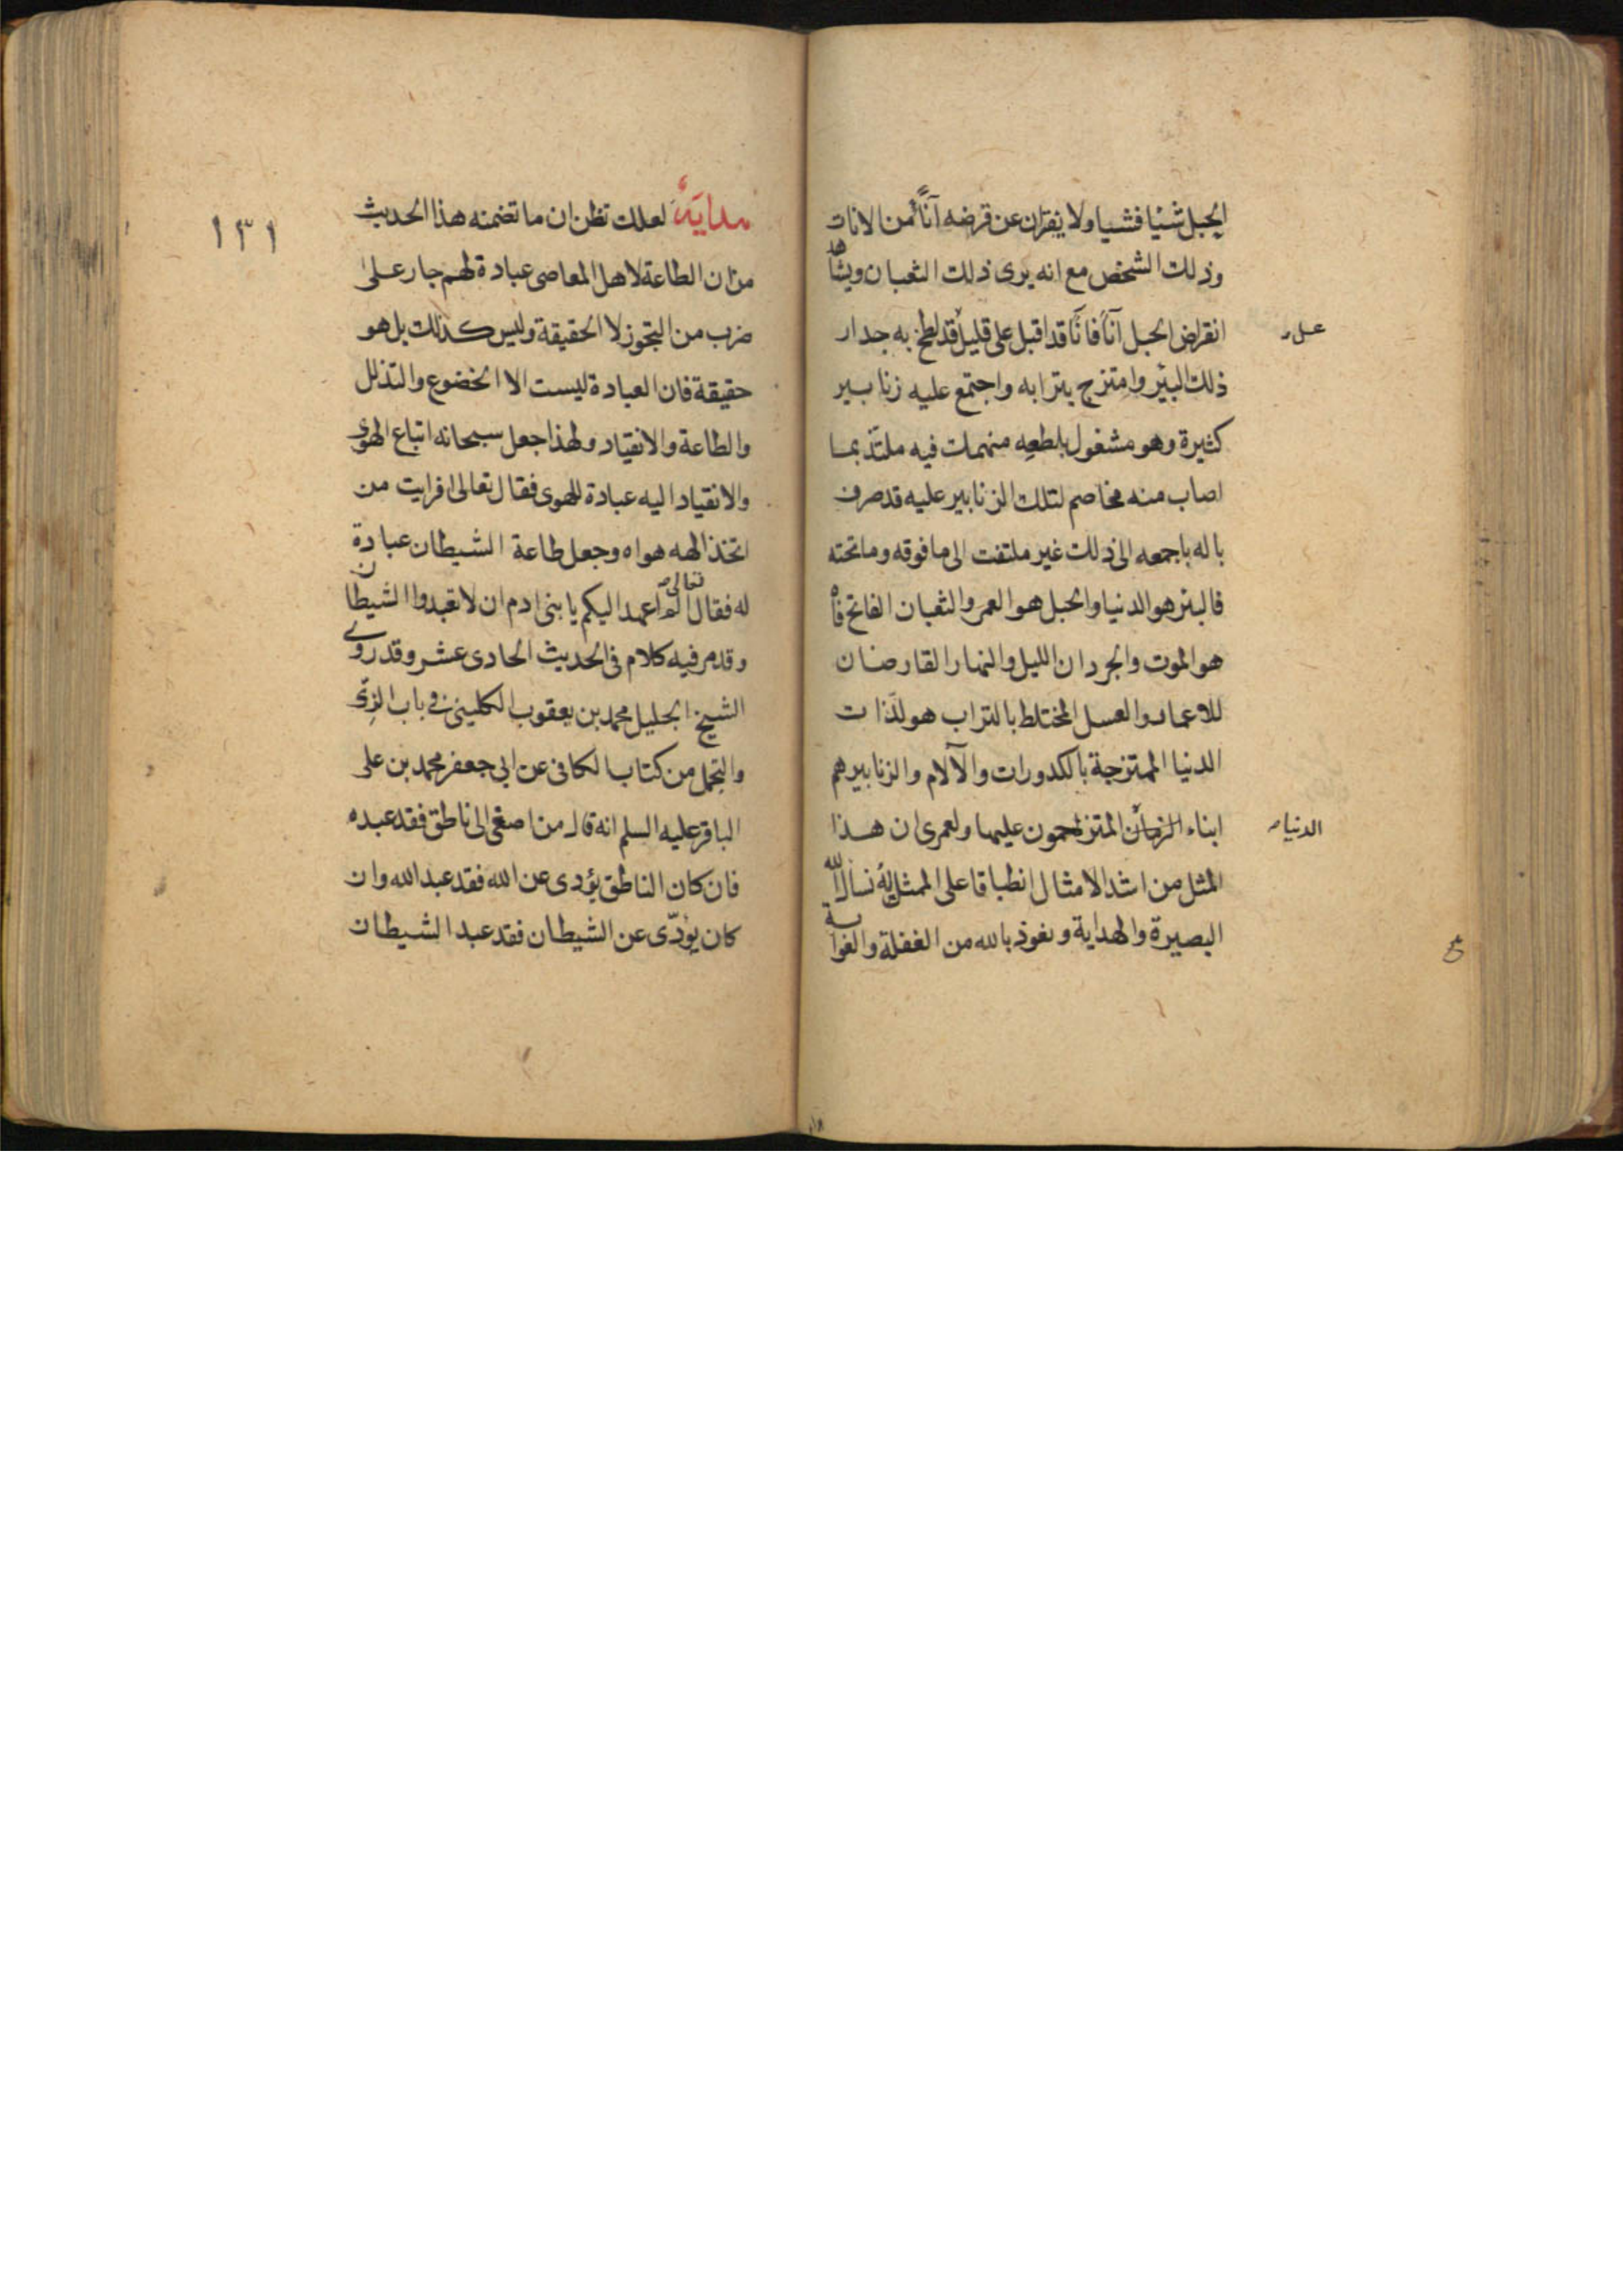 الحبل شيئا فشيا ولا يفتران عن قرضه آناً من الانات
وذلك الشخص مع انه يرى ذلك الثعبان ويشاهد
انقراض الحبل آناً فاناً قد اقبل على قليل قد لطخ به جدار
عسل
ذلك البئر وامتزج بترابه واجتمع عليه زنابير
كثيرة وهو مشغول بلطعه منهمك فيه ملتذ بما
اصاب منه مخاصم لتلك الزنابير عليه قد صرف
باله باجمعه الى ذلك غير ملتفت الى ما فوقه وما تحته
فالبئر هو الدنيا والحبل هو العمر والثعبان الفاتح فاه
هو الموت والجرذان الليل والنهار القارضان
للاعمار والعسل المختلط بالتراب هو لذات
الدنيا الممتزجة بالكدورات والآلام والزنابير هم
ابناء الزمان المتزاحمون عليها ولعمرى ان هذا
الدنيا
المثل من اشد الامثال انطباقا على الممثل له نسأل الله
البصيرة والهداية ونعوذ بالله من الغفلة والغواية
١٣١
هداية لعلك تظن ان ما تضمنه هذا الحديث
من ان الطاعة لاهل المعاصى عبادة لهم جار على
ضرب من التجوز لا الحقيقة وليس كذلك بل هو
حقيقة فان العبادة ليست الا الخضوع والتذلل
والطاعة والانقياد ولهذا جعل سبحانه اتباع الهوى
والانقياد اليه عبادة للهوى فقال تعالى افرايت من
اتخذ الهه هواه وجعل طاعة الشيطان عبادة
له فقال تعالى الم اعهد اليكم يا بنى ادم ان لا تعبدوا الشيطان
وقد مر فيه كلام فى الحديث الحادى عشر وقد روى
الشيخ الجليل محمد بن يعقوب الكلينى فى باب الزى
والتجمل من كتاب الكافى عن ابى جعفر محمد بن على
الباقر عليه السلم انه قال من اصغى الى ناطق فقد عبده
فان كان الناطق يؤدى عن الله فقد عبد الله وان
كان يؤدّى عن الشيطان فقد عبد الشيطان